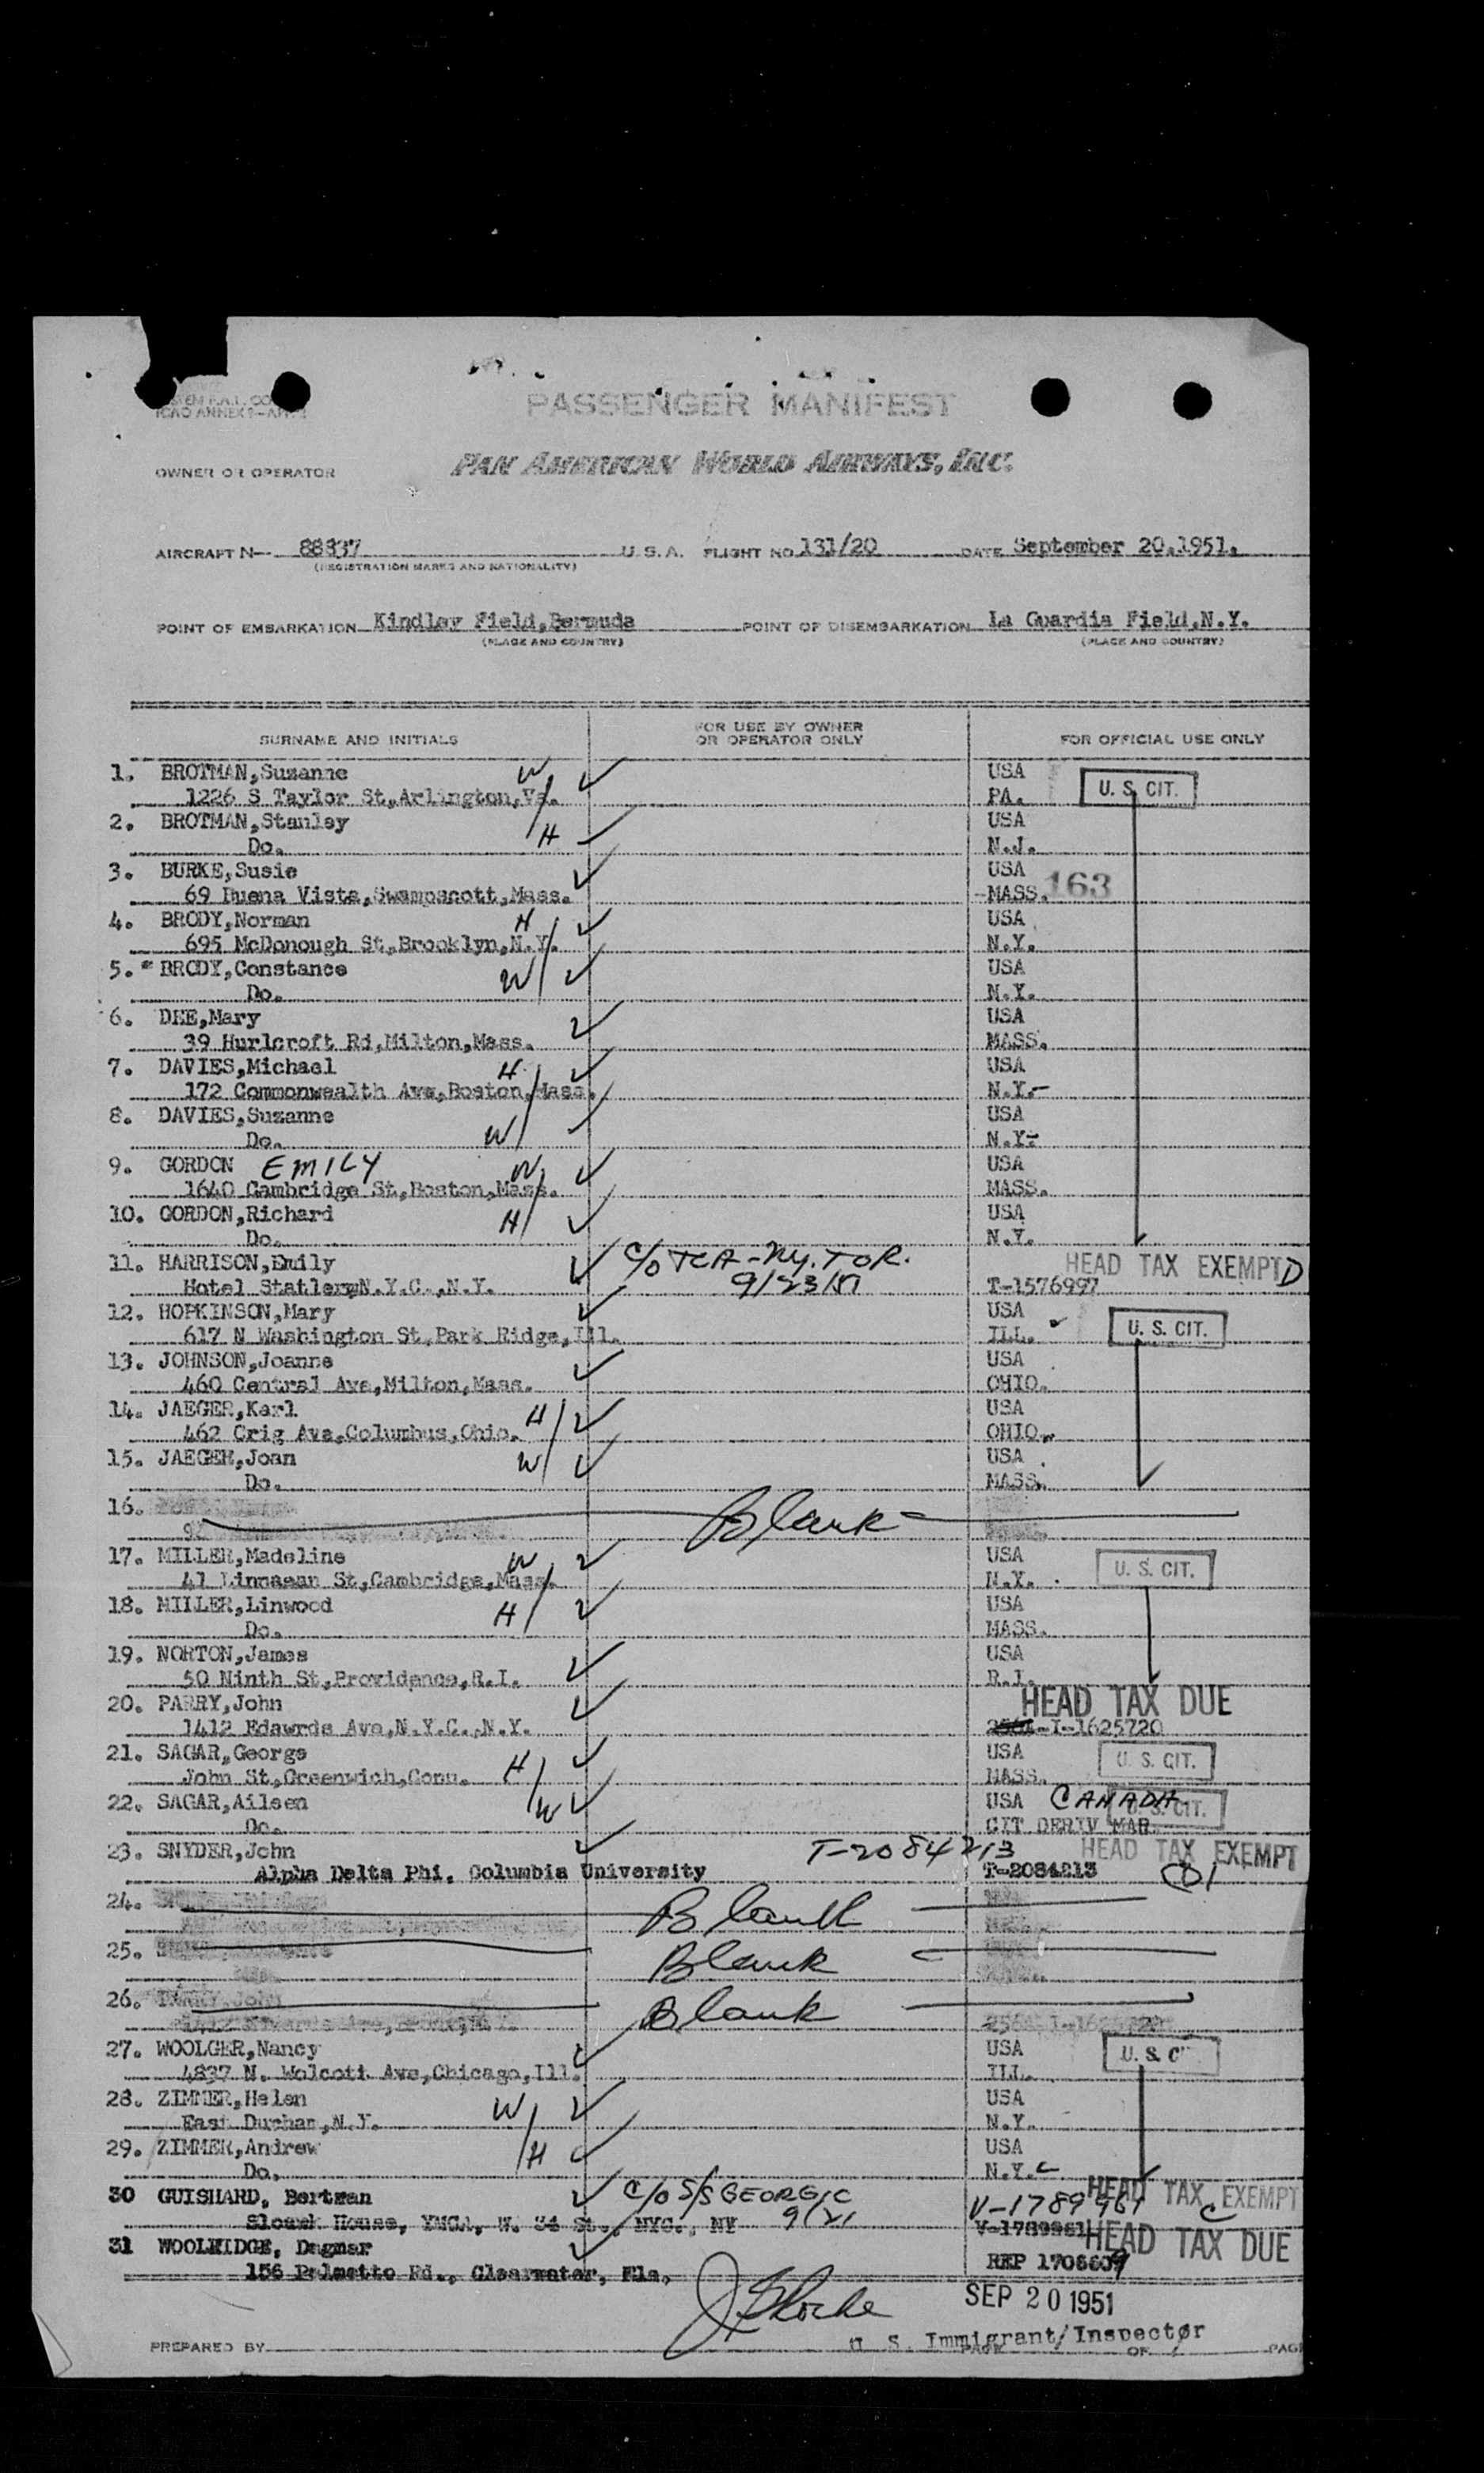 PASSENGER MANIFEST
OWNER OR OPERATOR PAN AMERICAN WORLD AIRWAYS, INC.
AIRCRAFT N- 88837 U.S.A. FLIGHT NO. 131/20 DATE September 20,1951.
(REGISTRATION MARKS AND NATIONALITY)
POINT OF EMBARKATION Kindley Field,Bermuda POINT OF DISEMBARKATION La Guardia Field,N.Y.
(PLACE AND COUNTRY) (PLACE AND COUNTRY)
SURNAME AND INITIALS FOR USE BY OWNER OR OPERATOR ONLY FOR OFFICIAL USE ONLY
1. BROTMAN,Suzanne W USA
1226 S Taylor St,Arlington,Va. PA. U. S. CIT.
2. BROTMAN,Stanley H USA
Do. N.J.
3. BURKE,Susie USA
69 Buena Vista,Swampscott,Mass. MASS. 163
4. BRODY,Norman H USA
695 McDonough St,Brooklyn,N.Y. N.Y.
5. BRODY,Constance W USA
Do. N.Y.
6. DEE,Mary USA
39 Hurlcroft Rd,Milton,Mass. MASS.
7. DAVIES,Michael H USA
172 Commonwealth Ave,Boston,Mass. N.Y.
8. DAVIES,Suzanne W USA
Do. N.Y.
9. GORDON EMILY W USA
1640 Cambridge St,Boston,Mass. MASS.
10. GORDON,Richard H USA
Do. N.Y.
11. HARRISON,Emily C/O TCA-NY.TOR. HEAD TAX EXEMPT D
Hotel Statler,N.Y.C.,N.Y. 9/23/51 T-1576997
12. HOPKINSON,Mary USA
617 N Washington St,Park Ridge,Ill. ILL. U. S. CIT.
13. JOHNSON,Joanne USA
460 Central Ave,Milton,Mass. OHIO.
14. JAEGER,Karl H USA
462 Crig Ave,Columbus,Ohio. OHIO.
15. JAEGER,Joan W USA
Do. MASS.
16. Blank
17. MILLER,Madeline W USA
41 Linnaean St,Cambridge,Mass. N.Y. U. S. CIT.
18. MILLER,Linwood H USA
Do. MASS.
19. NORTON,James USA
50 Ninth St,Providence,R.I. R.I.
20. PARRY,John HEAD TAX DUE
1412 Edawrds Ave,N.Y.C.,N.Y. 2564-I-1625720
21. SAGAR,George H USA
John St,Greenwich,Conn. MASS. U. S. CIT.
22. SAGAR,Aileen W USA CANADA
Do. CIT DERIV MAR. U. S. CIT.
23. SNYDER,John T-2084213 HEAD TAX EXEMPT
Alpha Delta Phi. Columbia University T-2084213
24. Blank
25. Blank
26. PARRY,John Blank
27. WOOLGER,Nancy USA
4837 N. Wolcott Ave,Chicago,Ill. ILL. U. S. C
28. ZIMMER,Helen W USA
East Durham,N.J. N.Y.
29. ZIMMER,Andrew H USA
Do. N.Y.
30 GUISHARD, Bertman C/O S/S GEORGIC V-1789961 HEAD TAX EXEMPT C
Sloank House, YMCA, W. 34 St., NYC., NY 9/21 V-1789961
31 WOOLRIDGE, Dagmar HEAD TAX DUE
156 Palmetto Rd., Clearwater, Fla, REP 1706609
SEP 20 1951
U. S. Immigrant/Inspector
PREPARED BY PAGE OF PAGE